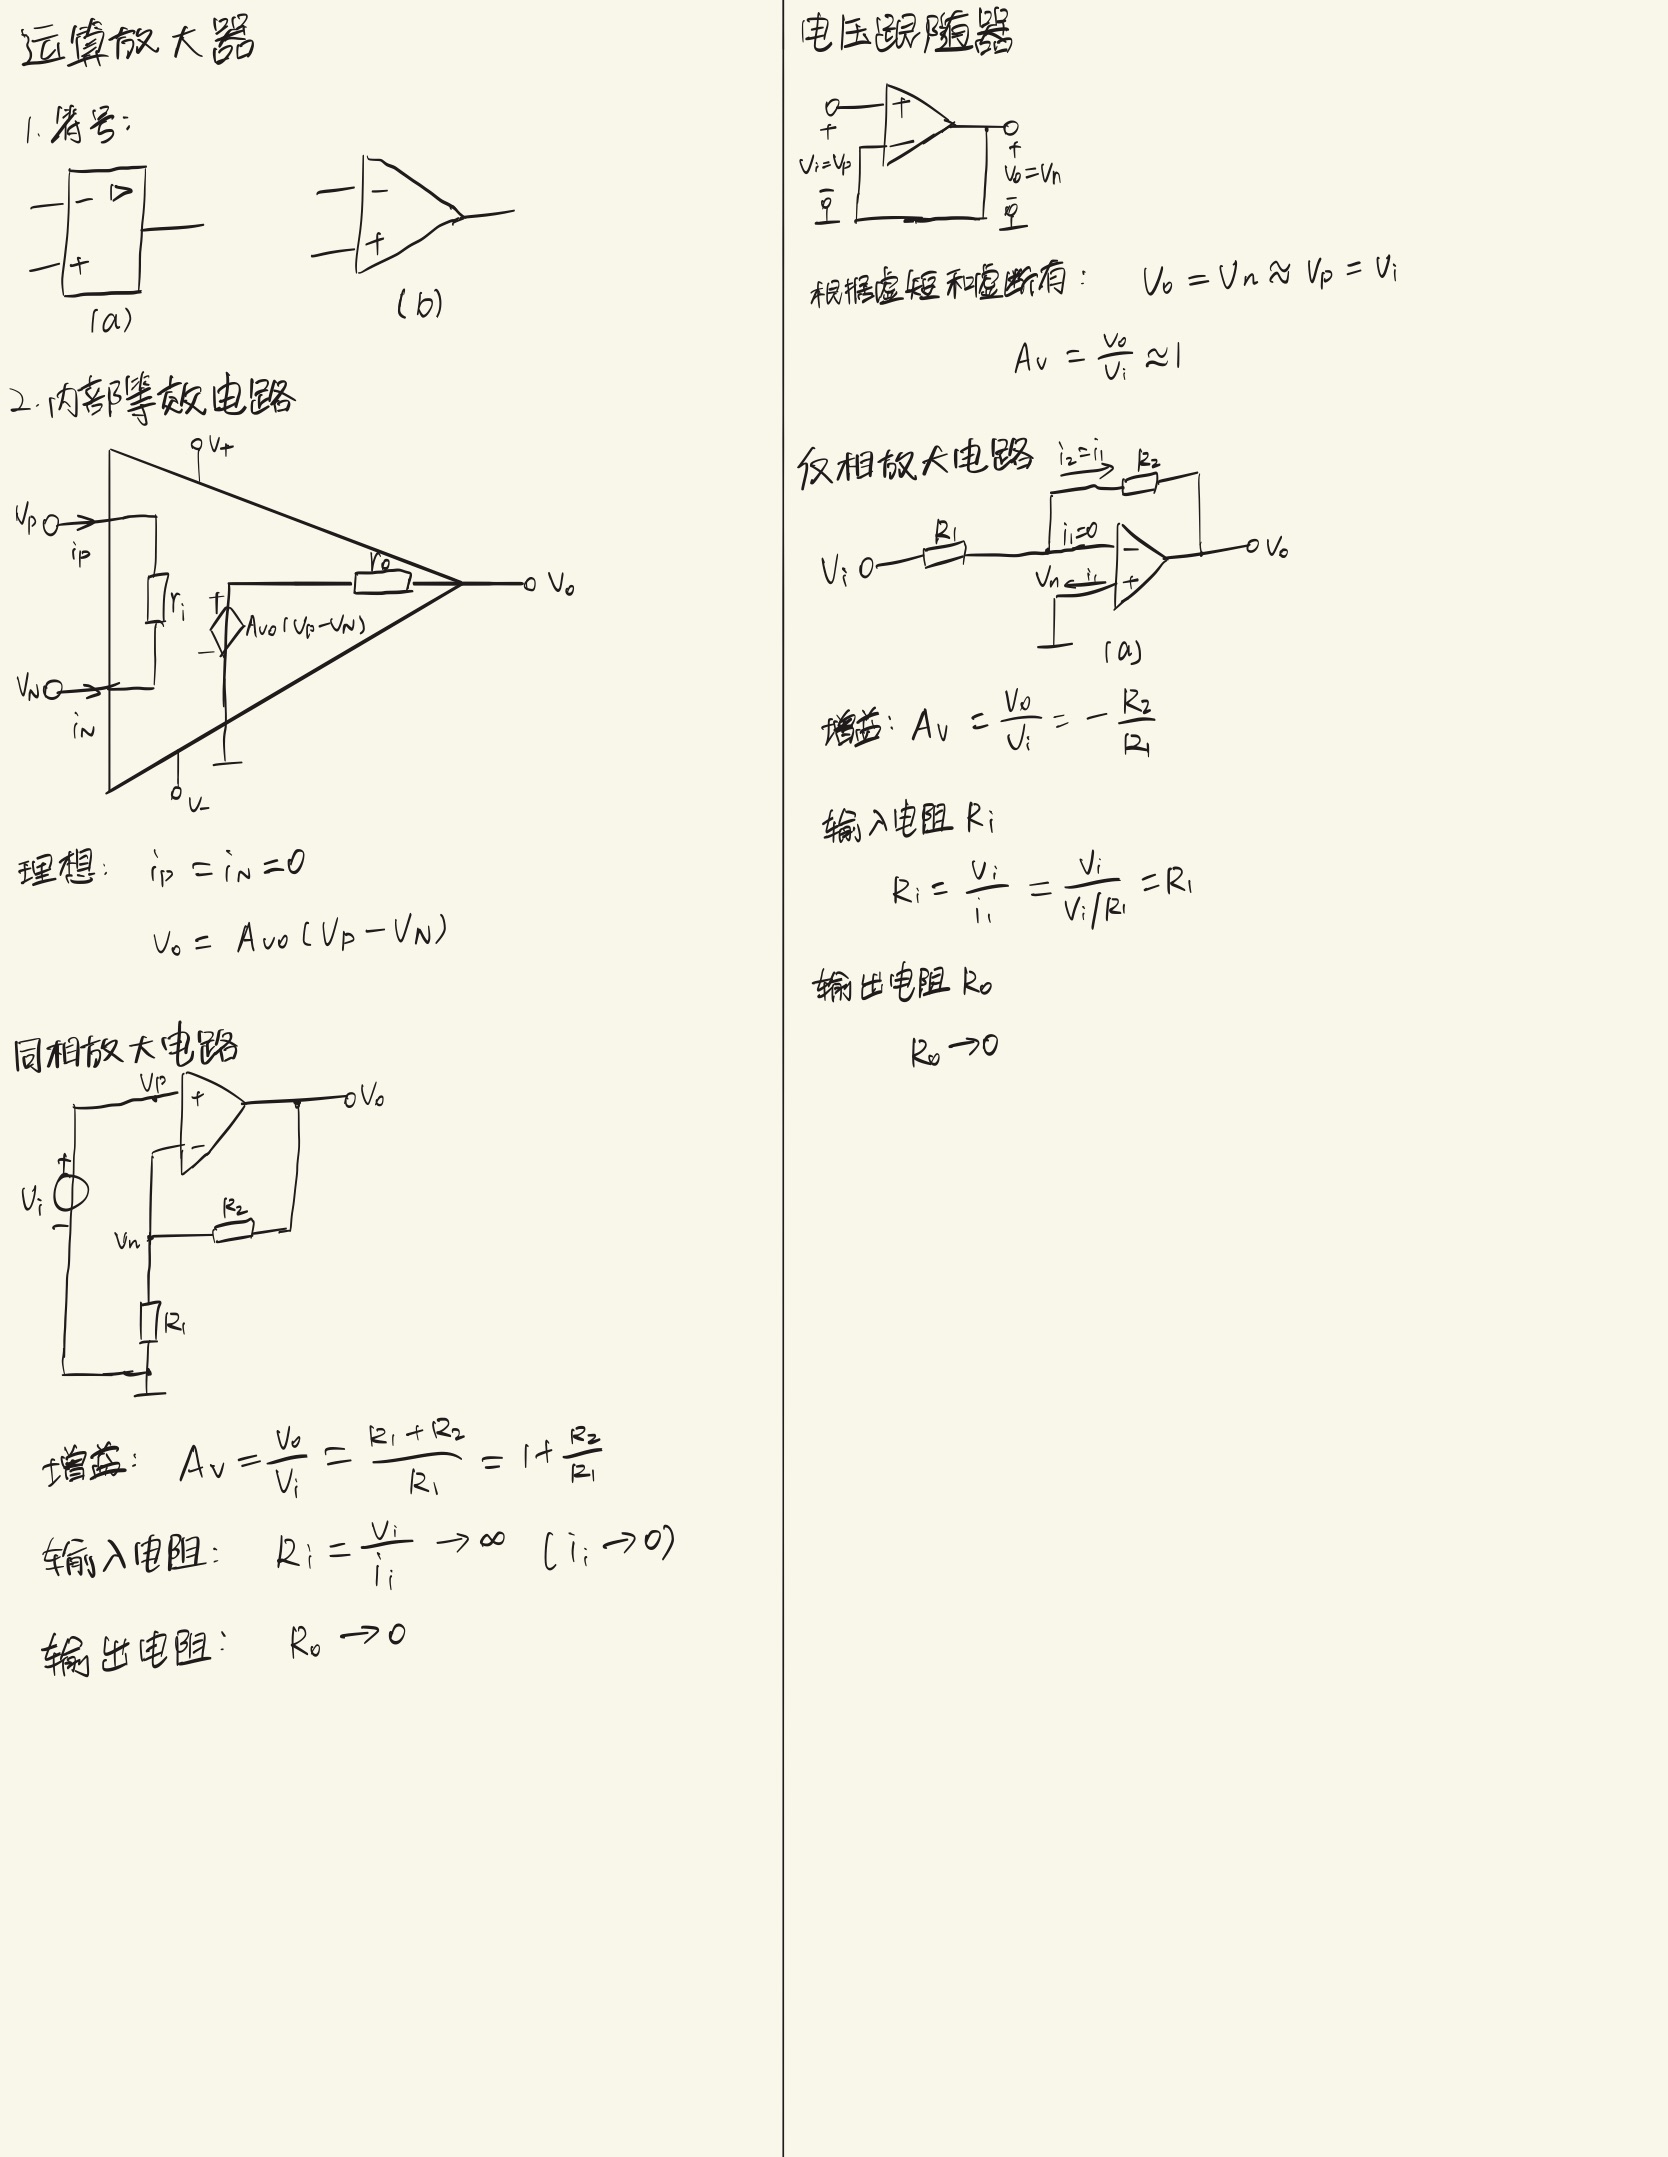 运算放大器
1. 符号:
- ▷
+
(a)
-
+
(b)
2. 内部等效电路
V+
Vp
ip
ri
ro
+
Avo(Vp-VN)
-
Vo
VN
iN
V-
理想: ip = iN = 0
Vo = Avo(Vp - VN)
同相放大电路
Vp
+
-
Vo
+
Vi
-
Vn
R2
R1
增益: Av = Vo/Vi = (R1+R2)/R1 = 1+R2/R1
输入电阻: Ri = Vi/ii → ∞ (ii → 0)
输出电阻: Ro → 0
电压跟随器
+
-
+
Vi=Vp
-
+
Vo=Vn
-
根据虚短和虚断有: Vo = Vn ≈ Vp = Vi
Av = Vo/Vi ≈ 1
反相放大电路
i2=i1
R2
R1
i1=0
Vi
-
Vn
i1
+
Vo
(a)
增益: Av = Vo/Vi = - R2/R1
输入电阻 Ri
Ri = Vi/i1 = Vi/(Vi/R1) = R1
输出电阻 Ro
Ro → 0